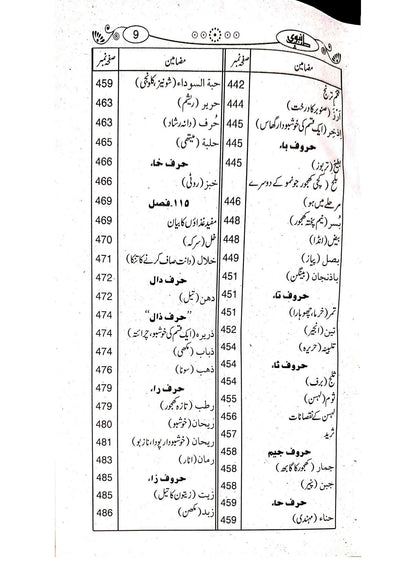 طب نبوی
9
مضامین
صفحہ نمبر
ترنج
442
اَرُز (صنوبر کا درخت)
444
اِذخِر (ایک قسم کی خوشبودار گھاس)
445
حروف باء
بطیخ (تربوز)
445
بلح (کچی کھجور جو نمو کے دوسرے
مرحلے میں ہو)
446
بُسر (نیم پختہ کھجور)
448
بیض (انڈا)
448
بصل (پیاز)
449
باذنجان (بینگن)
451
حروف تاء
451
تمر (خرما، چھوہارا)
451
تین (انجیر)
452
تلبینہ (حریرہ)
454
حروف ثاء
454
ثلج (برف)
454
ثوم (لہسن)
455
لہسن کے نقصانات
456
ثرید
457
حروف جیم
458
جمار (کھجور کا گابھ)
458
جبن (پنیر)
458
حرف حاء
459
حناء (مہندی)
459
مضامین
صفحہ نمبر
حبۃ السوداء (شونیز، کلونجی)
459
حریر (ریشم)
463
حُرف (دانہ رشاد)
463
حلبة (میتھی)
465
حرف خاء
466
خبز (روٹی)
466
۱۱۵۔ فصل
469
مفید غذاؤں کا بیان
469
خل (سرکہ)
470
خلال (دانت صاف کرنے کا تنکا)
471
حرف دال
472
دھن (تیل)
472
"حرف ذال"
474
ذریرہ (ایک قسم کی خوشبو، چرائتہ)
474
ذباب (مکھی)
474
ذھب (سونا)
476
حرف راء
479
رطب (تازہ کھجور)
479
ریحان (خوشبو)
480
ریحان (خوشبودار پودا، نازبو)
481
رمان (انار)
483
حروف زاء
485
زیت (زیتون کا تیل)
485
زبد (مکھن)
486